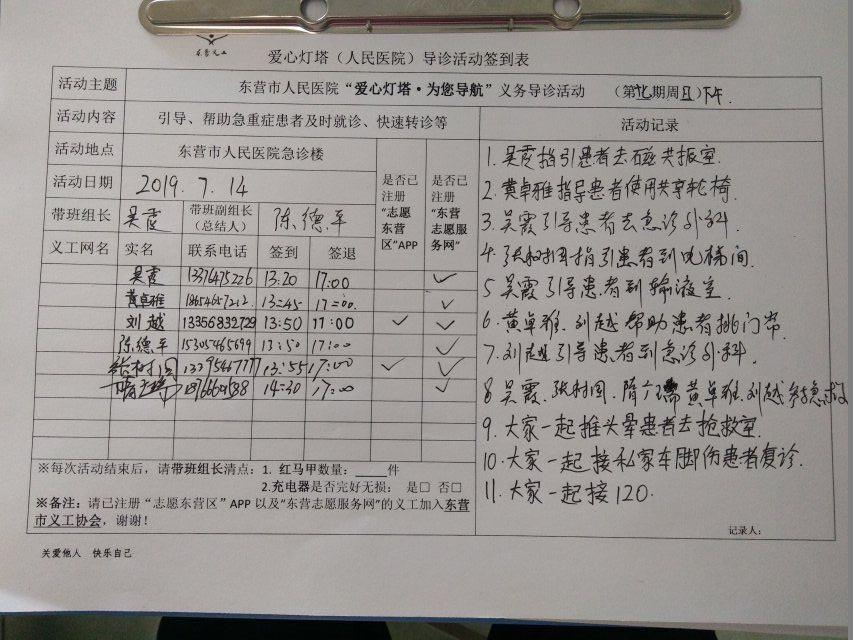 东营义工
爱心灯塔（人民医院）导诊活动签到表
活动主题 东营市人民医院“爱心灯塔·为您导航”义务导诊活动 （第 期周日）下午.
活动内容 引导、帮助急重症患者及时就诊、快速转诊等 活动记录
活动地点 东营市人民医院急诊楼
活动日期 2019.7.14
是否已注册“志愿东营区”APP
是否已注册“东营志愿服务网”
带班组长 吴霞 带班副组长（总结人） 陈德平
义工网名 实名 联系电话 签到 签退
吴霞 13376475226 13:20 17:00 ✓
黄卓雅 18654657212 13:45 17:00 ✓
刘越 13356832729 13:50 17:00 ✓ ✓
陈德平 15305465699 13:50 17:00 ✓
张树国 13395467777 13:55 17:00 ✓ ✓
14:30 17:00 ✓
※每次活动结束后，请带班组长清点：1. 红马甲数量：____件
2.充电器是否完好无损： 是□ 否□
※备注：请已注册“志愿东营区”APP以及“东营志愿服务网”的义工加入东营
市义工协会，谢谢！
1. 吴霞指引患者去磁共振室.
2. 黄卓雅指导患者使用共享轮椅.
3. 吴霞引导患者去急诊外科.
4. 张树国指引患者到电梯间.
5 吴霞引导患者到输液室.
6. 黄卓雅.刘越帮助患者挑门帘.
7. 刘越引导患者到急诊外科.
8 吴霞、张树国、隋 黄卓雅.刘越参与急救
9. 大家一起推头晕患者去抢救室.
10. 大家一起接私家车脚伤患者复诊.
11. 大家一起接120.
记录人：
关爱他人 快乐自己